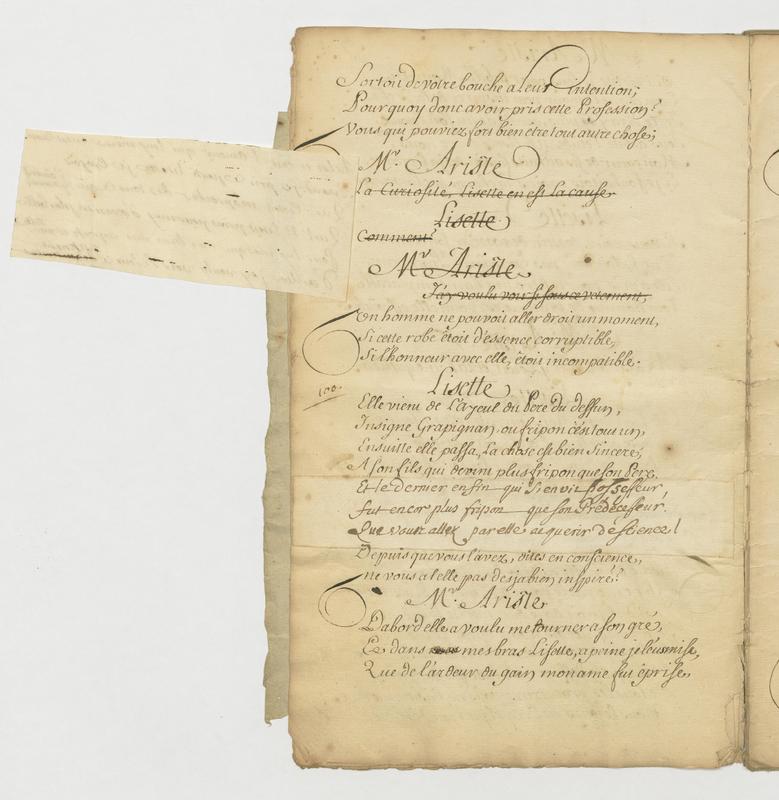 Sortoit de vôtre bouche a leur intention;
Pourquoy donc avoir pris cette Profession?
Vous qui pouviez fort bien être tout autre chose;
Mr. Ariste
La Curiosité, Lisette en est la cause
Lisette
Comment?
Mr Ariste
J'ay voulu voir si sous ce vetement,
Un homme ne pouvoit aller droit un moment,
Si cette robe êtoit d'essence corruptible,
Si l'honneur avec elle, étoit incompatible.
100.
Lisette
Elle vient de L'ayeul du Pere du deffun,
Insigne Grapignan, ou fripon c'est tout un,
Ensuitte elle passa, La chose est bien Sincere,
A son fils qui devint plus fripon que son Pere.
Et le dernier enfin qui s'en vit possesseur,
fut encor plus fripon que son Prédécesseur.
Que vous allez par elle acquerir de scïence!
Depuis que vous l'avez, dites en conscience,
ne vous a t'elle pas desja bien inspiré?
Mr. Ariste
D'abord elle a voulu me tourner a son gré,
Et dans mes bras Lisette, a peine je l'eus mise,
Que de l'ardeur du gain mon ame fut éprise,